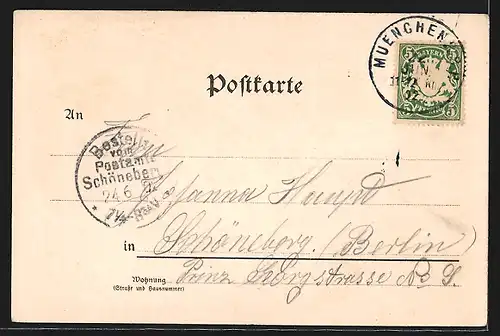 MUENCHEN
BAYERN
5 5
Postkarte
An
Frau
Bestellt
vom
Postamte
Schöneberg
24.6
Susanna Haupt
in Schöneberg (Berlin)
Wohnung
(Straße und Hausnummer)
Prinz Georgstrasse No